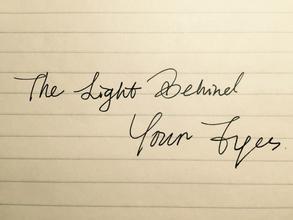 The Light Behind
Your Eyes.